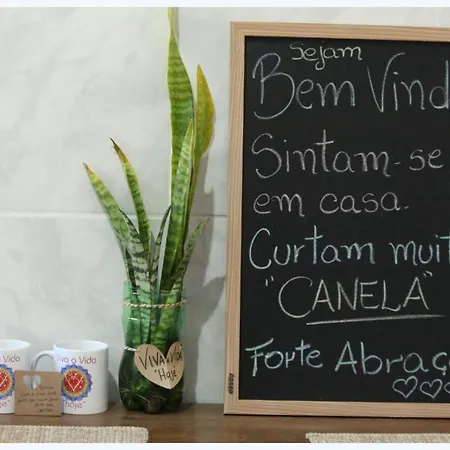 Sejam
Bem Vind
Sintam-se
em casa.
Curtam muit
"CANELA"
Forte Abraço
Viva a Vida
"Hoje"
Viva a Vida
"hoje"